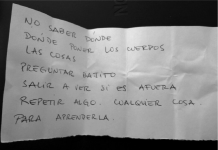 NO SABER DONDE
DONDE PONER LOS CUERPOS
LAS COSAS
PREGUNTAR BAJITO
SALIR A VER SI ES AFUERA
REPETIR ALGO. CUALQUIER COSA.
PARA APRENDERLA.